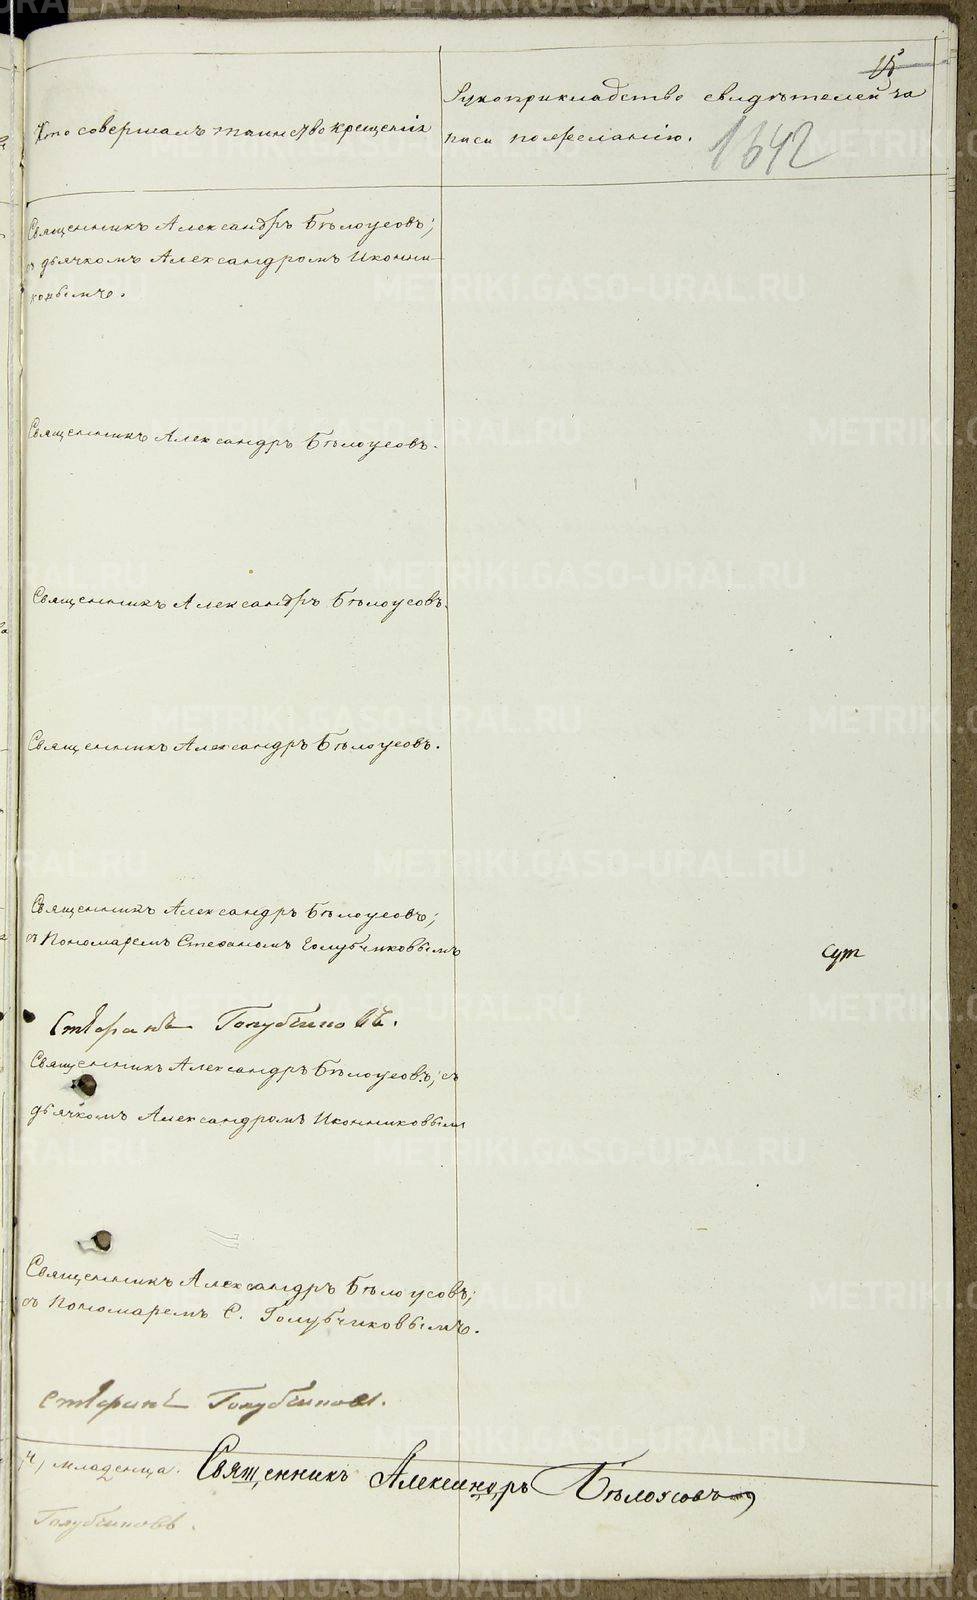 15
Кто совершалъ таинство крещенія
Рукоприкладство свидѣтелей за
писи пожеланію.
1642
Священникъ Александръ Бѣлоусовъ;
съ дьячкомъ Александромъ Иконни-
ковымъ.
Священникъ Александръ Бѣлоусовъ.
Священникъ Александръ Бѣлоусовъ.
Священникъ Александръ Бѣлоусовъ.
Священникъ Александръ Бѣлоусовъ;
съ Пономаремъ Стефаномъ Голубчиковымъ
сут
Голубчиковъ.
Священникъ Александръ Бѣлоусовъ; съ
дьячкомъ Александромъ Иконниковым
Священникъ Александръ Бѣлоусовъ;
съ Пономаремъ С. Голубчиковымъ.
Голубчиковъ.
младенца. Священникъ Александръ Бѣлоусовъ
Голубчиковъ.
METRIKI.GASO-URAL.RU